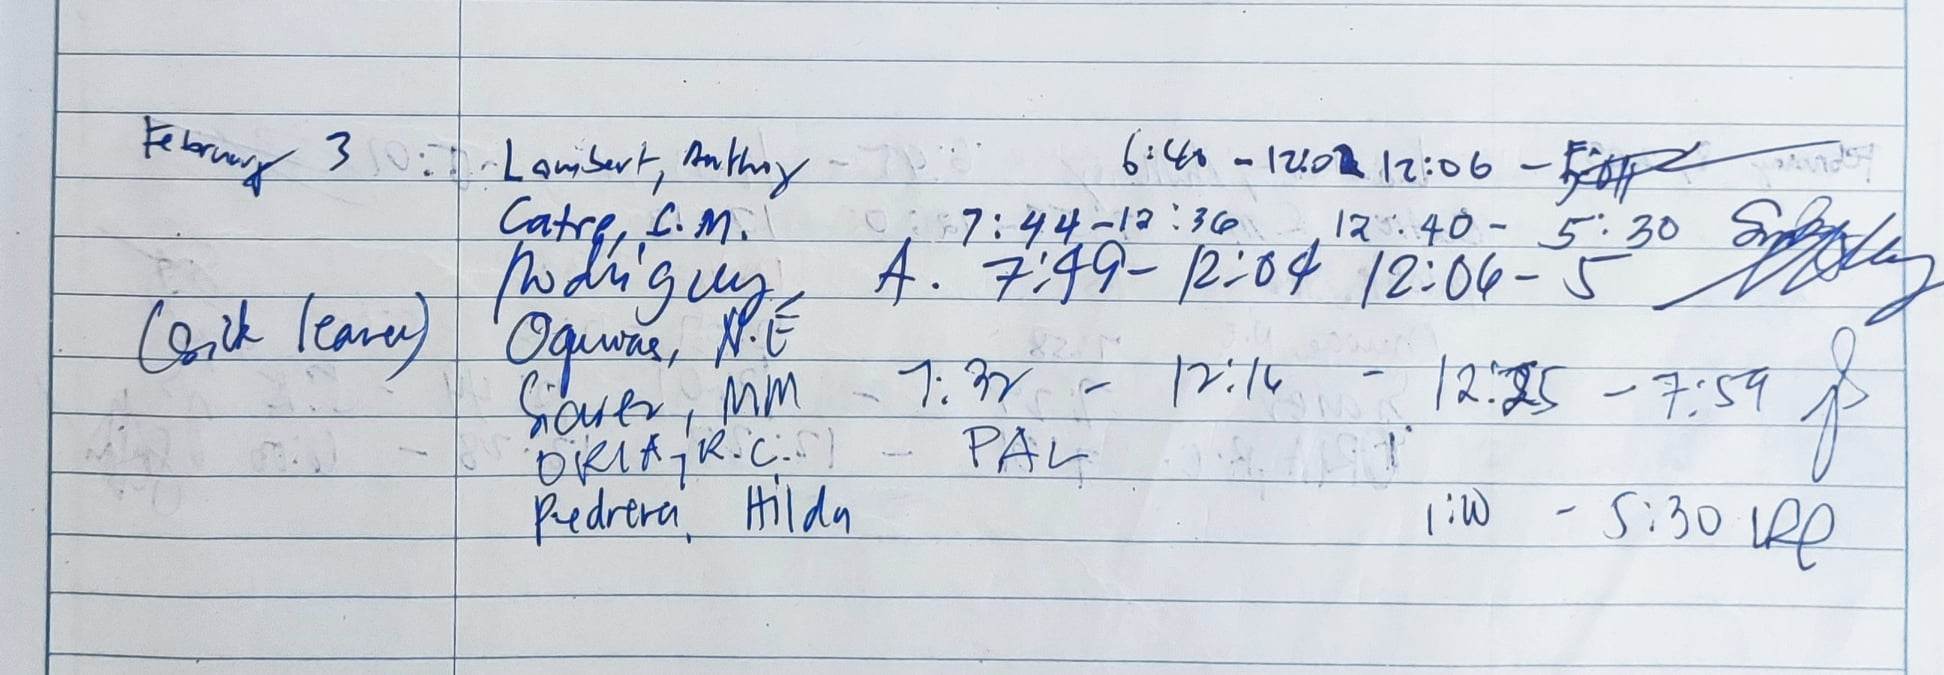 February 3 Lambert, Anthony 6:40 - 12:02 12:06 - 5:01
Catre, C.M. 7:44-12:36 12:40 - 5:30
Rodriguez, A. 7:49 - 12:04 12:06 - 5
(Sick leave) N.E
MM 7:32 - 12:16 - 12:25 - 7:59
ORIA, R.C. PAL
Pedrera, Hilda 1:10 - 5:30